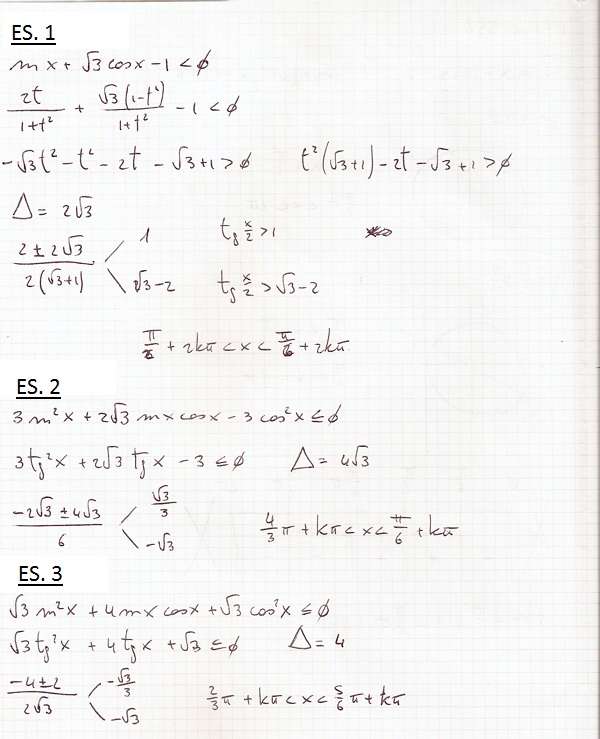 ES. 1
sen x + √3 cos x - 1 < 0
2t/(1+t²) + √3(1-t²)/(1+t²) - 1 < 0
-√3t² - t² - 2t - √3 + 1 > 0    t²(√3+1) - 2t - √3 + 1 > 0
Δ = 2√3
(2 ± 2√3)/(2(√3+1))    1    tg x/2 > 1
√3-2    tg x/2 > √3-2
+ 2kπ < x < + 2kπ
ES. 2
3 sen²x + 2√3 sen x cos x - 3 cos²x ≤ 0
3tg²x + 2√3 tg x - 3 ≤ 0    Δ = 4√3
(-2√3 ± 4√3)/6    √3/3    -√3    4/3 π + kπ < x < π/6 + kπ
ES. 3
√3 sen²x + 4 sen x cos x + √3 cos²x ≤ 0
√3 tg²x + 4 tg x + √3 ≤ 0    Δ = 4
(-4 ± 2)/(2√3)    -√3/3    -√3    2/3 π + kπ < x < 5/6 π + kπ